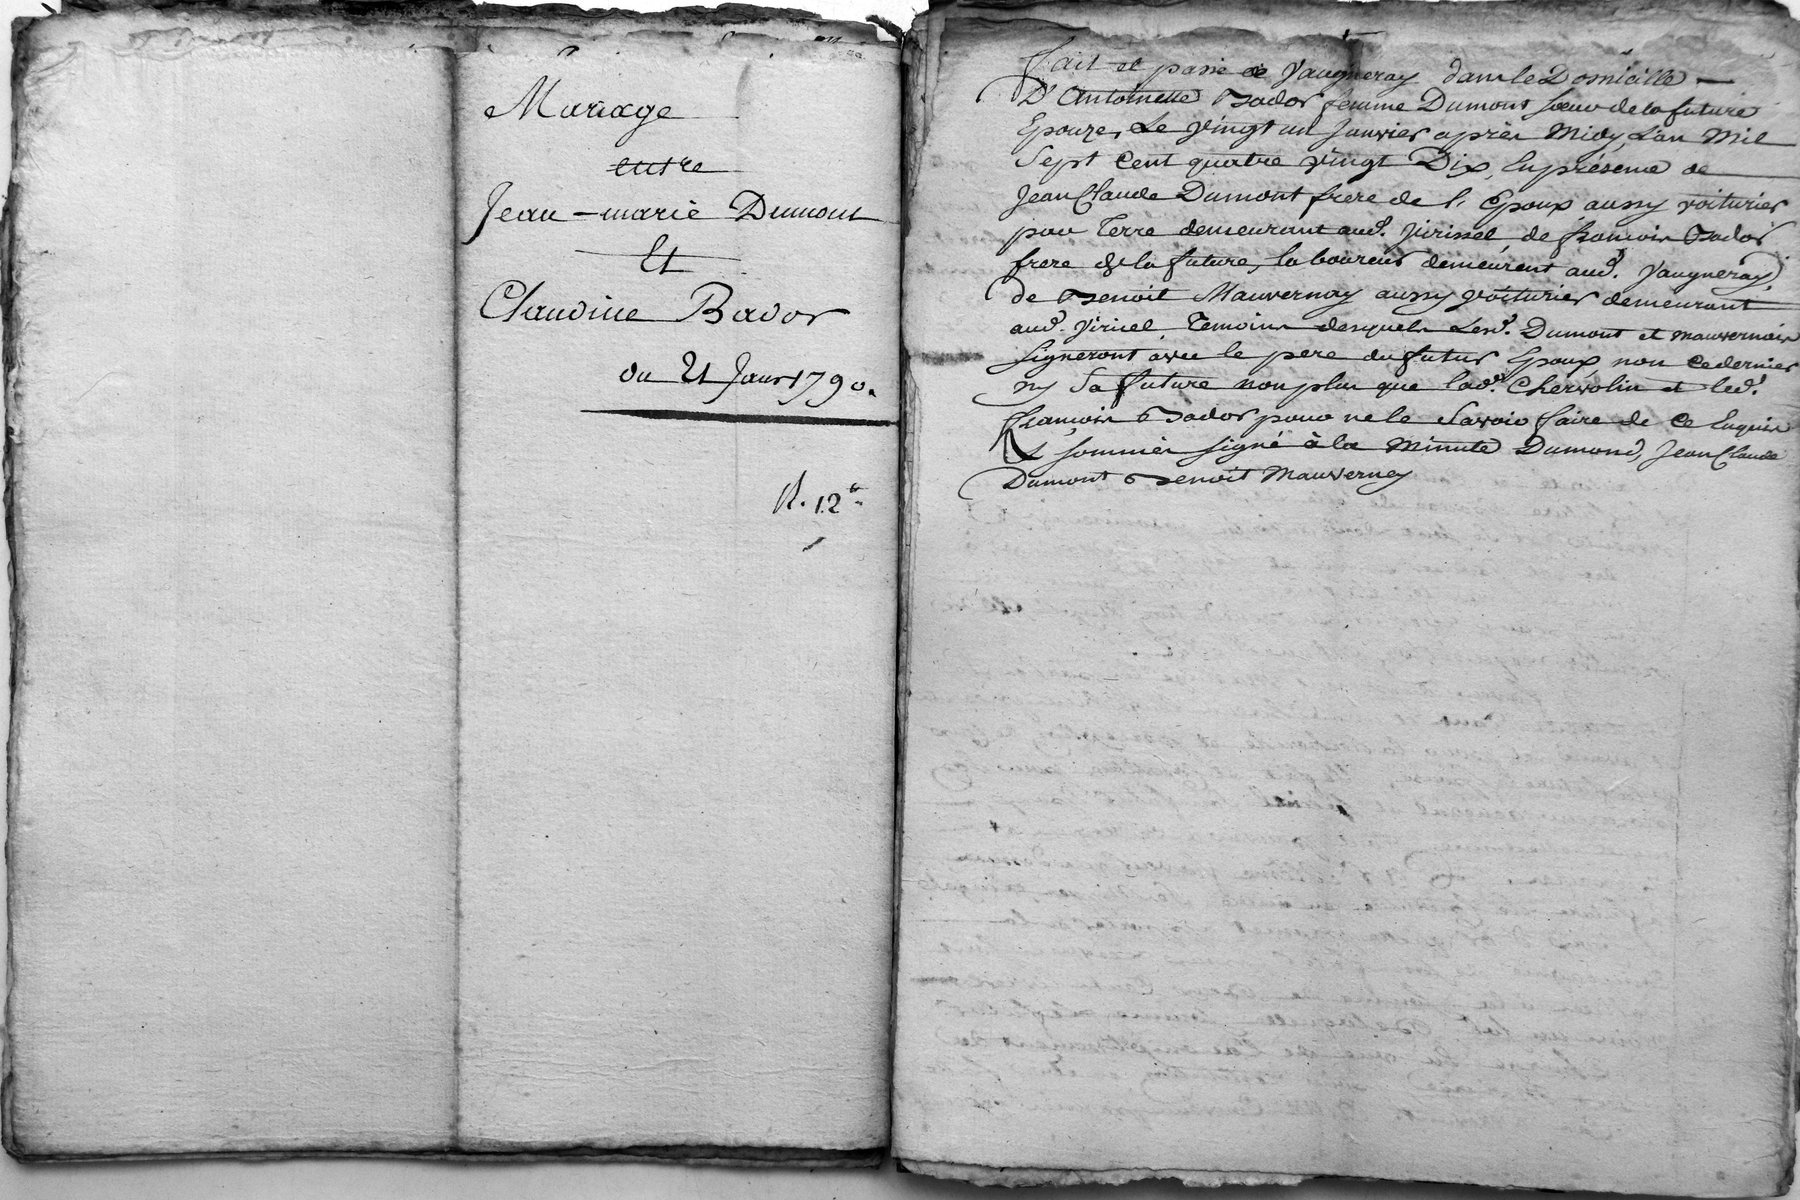 Mariage
entre
Jean-marie Dumont
Et
Claudine Bador
du 21 Janr 1790.
R. 12s
fait et passé à Vaugneray dans le Domicille
D'Antoinette Bador femme Dumont soeur de la future
Epouze, Le vingt un Janvier après Midy L'an Mil
Sept Cent quatre vingt Dix, En présence de
Jean Claude Dumont frere de l'Epoux aussy voiturier
par Terre demeurant aud. Yirissel, de françois Bador
frere de la future, laboureur demeurent aud. Vaugneray,
de Benoit Mauvernay aussy voiturier demeurant
aud. Yiricel Temoins desquels Lesd. Dumont et mauvernais
signeront avec le pere du futur Epoux non ce dernier
ny Sa future non plus que lad. Chervolin et led.
françois Bador pour ne le Savoir faire de ce Enquis
Et sommés signé à la Minute Dumond, Jean Claude
Dumont Benoit Mauverney